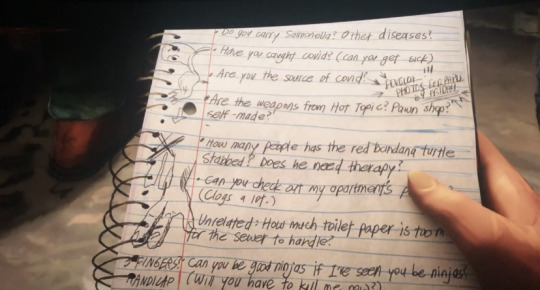 • Do you carry Salmonella? Other diseases?
• Have you caught covid? (can you get sick)
• Are you the source of covid?
DEVELOP !!!
PHOTOS
BY FRIDAY
• Are the weapons from Hot Topic? Pawn shop?
self-made?
• How many people has the red bandana turtle
stabbed? Does he need therapy?
• Can you check out my apartment's
(Clogs a lot.)
Unrelated: How much toilet paper is too m
for the sewer to handle?
3 FINGERS? Can you be good ninjas if I've seen you be ninjas?
HANDICAP (Will you have to kill me now?)